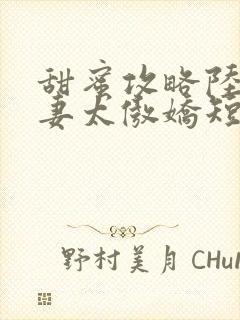 甜蜜攻略陸
妻太傲嬌短
野村美月 CHuN